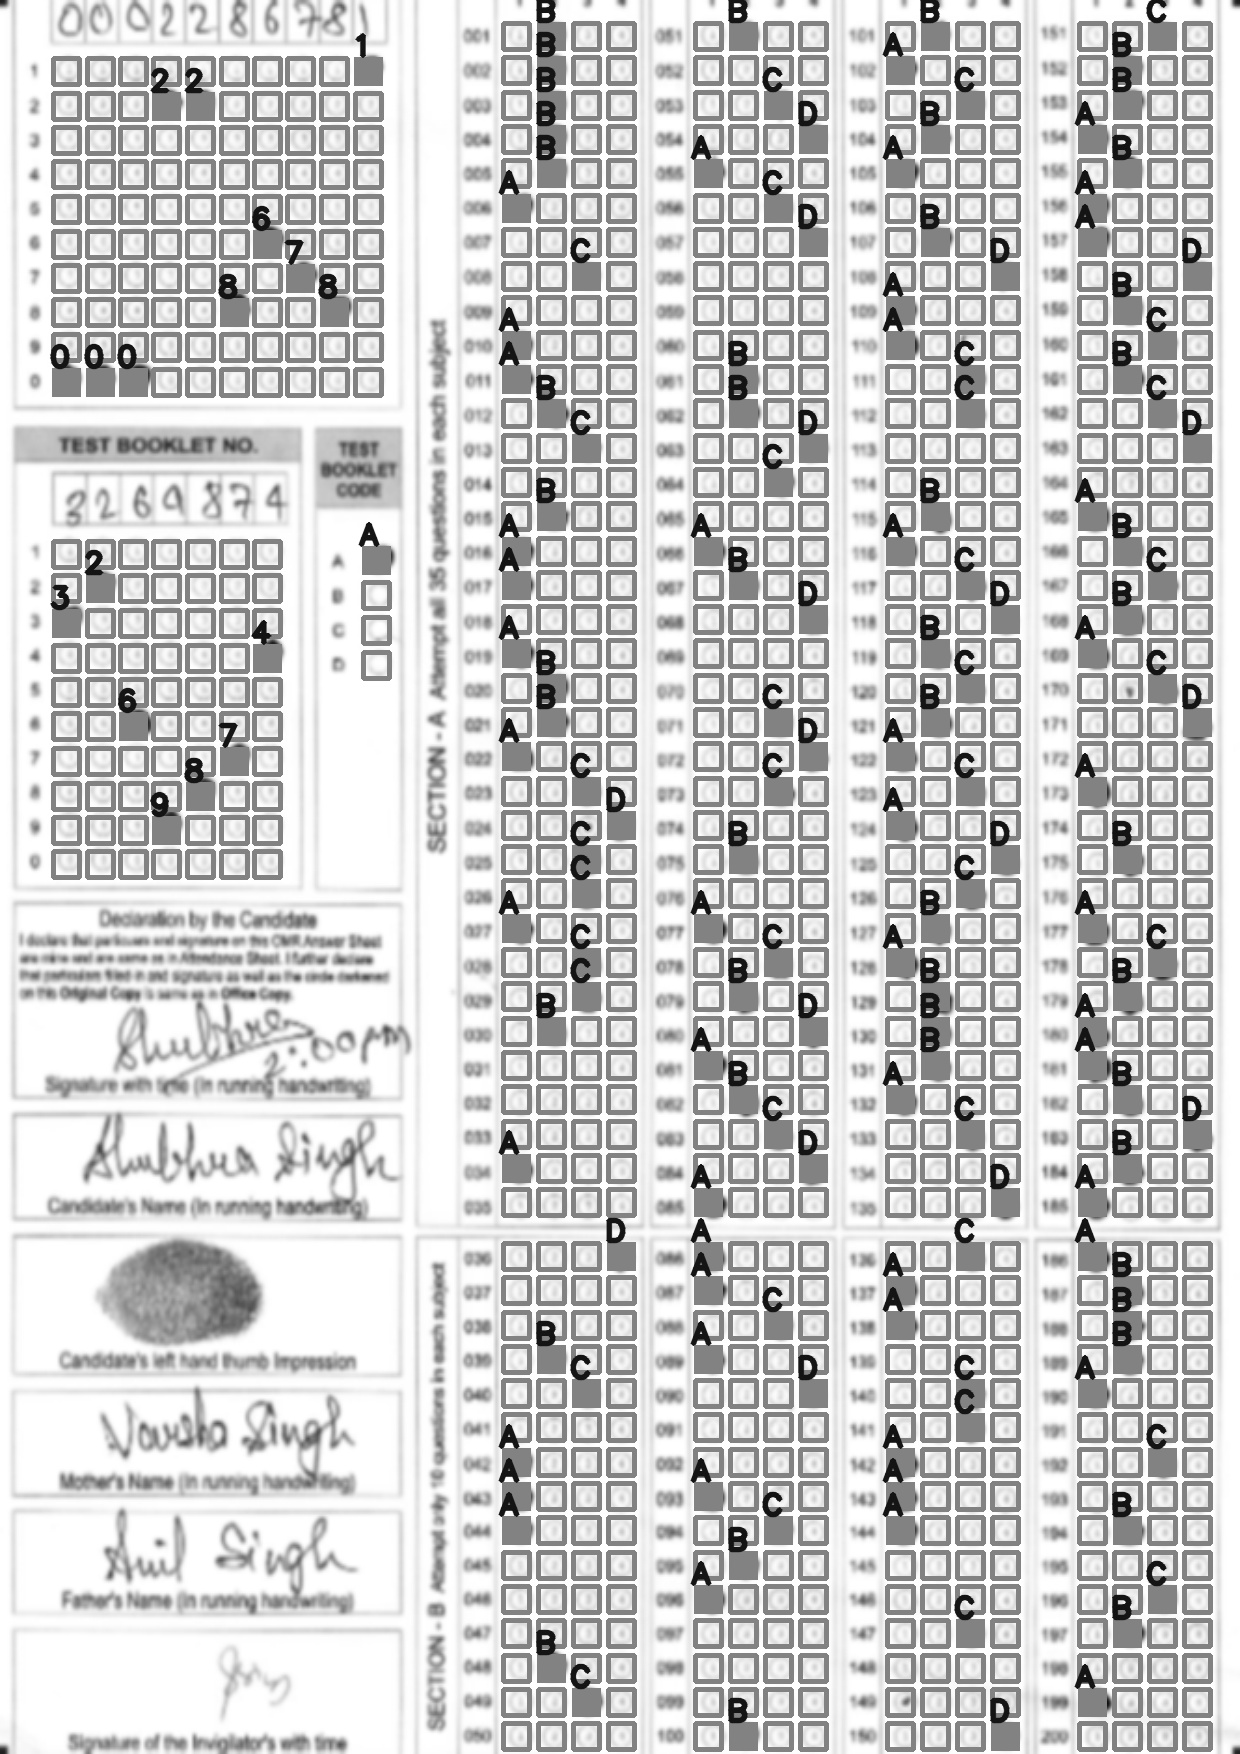 0002286781
1 1
2 2 2
3
4
5
6 6
7 7
8 8 8
9
0 0 0 0
TEST BOOKLET NO.
3269874
1
2 2
3 3
4 4
5
6 6
7 7
8 8
9 9
0
TEST
BOOKLET
CODE
A A
B
C
D
Declaration by the Candidate
I declare that particulars and signature on this OMR Answer Sheet
are mine and are same as in Attendance Sheet. I further declare
that particulars filled in and signature as well as the circle darkened
on this Original Copy is same as in Office Copy.
Shubhra
2:00 PM
Signature with time (In running handwriting)
Shubhra Singh
Candidate's Name (In running handwriting)
Candidate's left hand thumb Impression
Varsha Singh
Mother's Name (In running handwriting)
Anil Singh
Father's Name (In running handwriting)
Signature of the Invigilator's with time
SECTION - A Attempt all 35 questions in each subject
001 B
002 B
003 B
004 B
005 B
006 A
007
008 C
009
010 A
011 A
012 B
013 C
014
015 B
016 A
017 A
018
019 A
020 B
021 B
022 A
023 C
024 D
025 C
026 C
027 A
028 C
029 C
030 B
031
032
033
034 A
035
SECTION - B Attempt only 10 questions in each subject
036 D
037
038
039 B
040 C
041
042 A
043 A
044 A
045
046
047
048 B
049 C
050
051 B
052
053 C
054 D
055 A
056 C
057 D
058
059
060
061 B
062 B
063 D
064 C
065
066 A
067 B
068 D
069
070
071 C
072 D
073 C
074
075 B
076
077 A
078 C
079 B
080 D
081 A
082 B
083 C
084 D
085 A
086 A
087 A
088 C
089 A
090 D
091
092
093 A
094 C
095 B
096 A
097
098
099
100 B
101 B
102 A
103 C
104 B
105 A
106
107 B
108 D
109 A
110 A
111 C
112 C
113
114
115 B
116 A
117 C
118 D
119 B
120 C
121 B
122 A
123 C
124 A
125 D
126 C
127 B
128 A
129 B
130 B
131 B
132 A
133 C
134
135 D
136 C
137 A
138 A
139
140 C
141 C
142 A
143 A
144 A
145
146
147 C
148
149
150 D
151 C
152 B
153 B
154 A
155 B
156 A
157 A
158 D
159 B
160 C
161 B
162 C
163 D
164
165 A
166 B
167 C
168 B
169 A
170 C
171 D
172
173 A
174
175 B
176
177 A
178 C
179 B
180 A
181 A
182 B
183 D
184 B
185 A
186 A
187 B
188 B
189 B
190 A
191
192 C
193
194 B
195
196 C
197 B
198
199 A
200